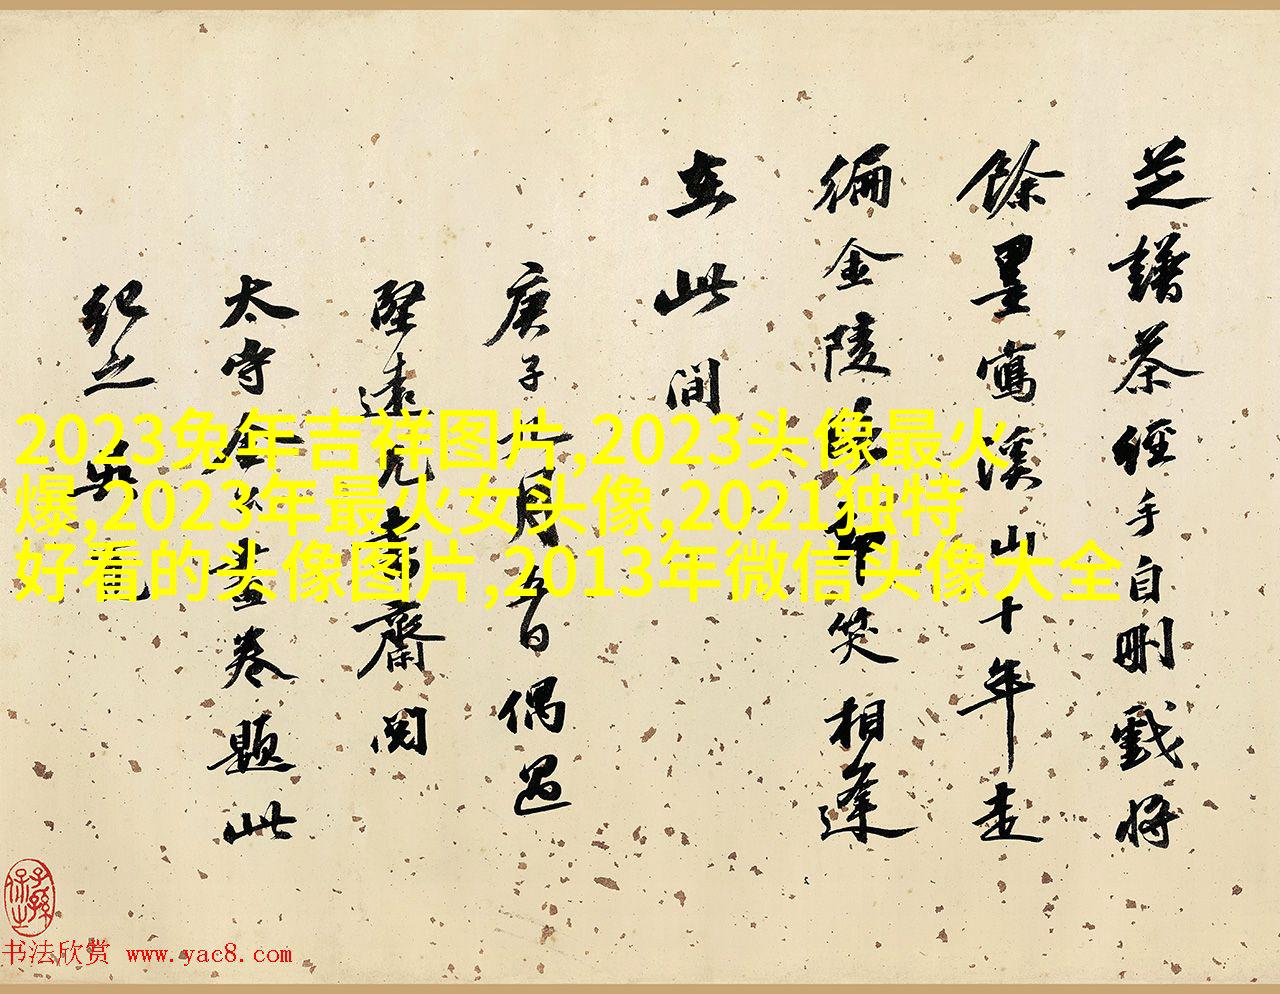 芝譜茶經手自刪戲將
餘墨寫溪山十年走
徧金陵卻笑相逢
在此間
庚子月偶過
堅遠兄齋閱
太守卷題此
紀之
2023兔年吉祥图片,2023头像最火
爆,2023年最火女头像,2021独特
好看的头像图片,2013年微信头像大全
子孫保之
书法欣赏 www.yac8.com